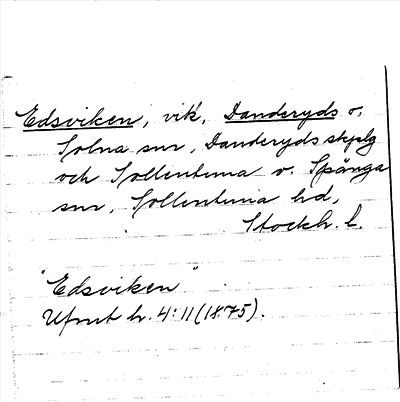 Edsviken, vik, Danderyds o.
Solna snr, Danderyds skplg
och Sollentuna o. Spånga
snr, Sollentuna hd,
Stockh. l.
"Edsviken"
Ufmt h. 4:11 (1875).